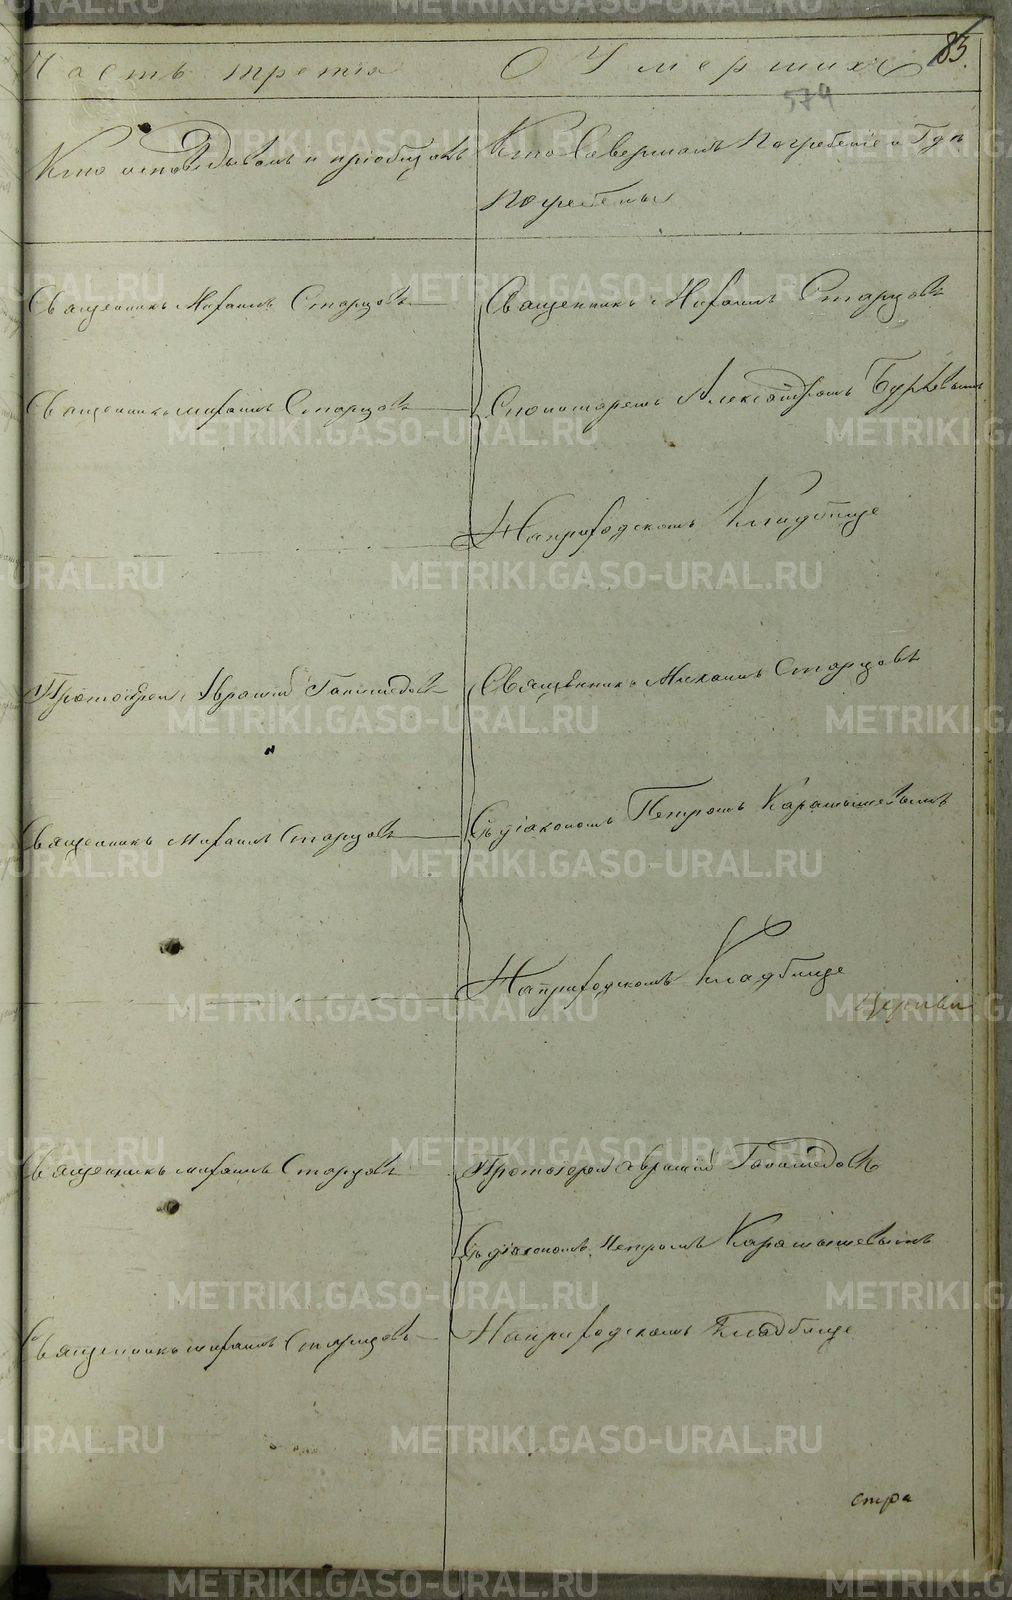 Часть третія
О Умершихъ
85.
574
Кто исповѣдывалъ и пріобщалъ
Кто Совершалъ Погребеніе и Гдѣ
Погребены
Священникъ Михаилъ Старцовъ
Священникъ Михаилъ Старцовъ
Священникъ Михаилъ Старцовъ
Спономаремъ Александромъ
Наприходскомъ Кладбище
Протоіерей
Священникъ Михаилъ Старцовъ
Священникъ Михаилъ Старцовъ
Съ діакономъ Петромъ Карамышевымъ
Наприходскомъ Кладбище
Церкви
Священникъ Михаилъ Старцовъ
Протоіерей
Съ діакономъ Петромъ Карамышевымъ
Священникъ Михаилъ Старцовъ
Наприходскомъ Кладбище
стра
METRIKI.GASO-URAL.RU